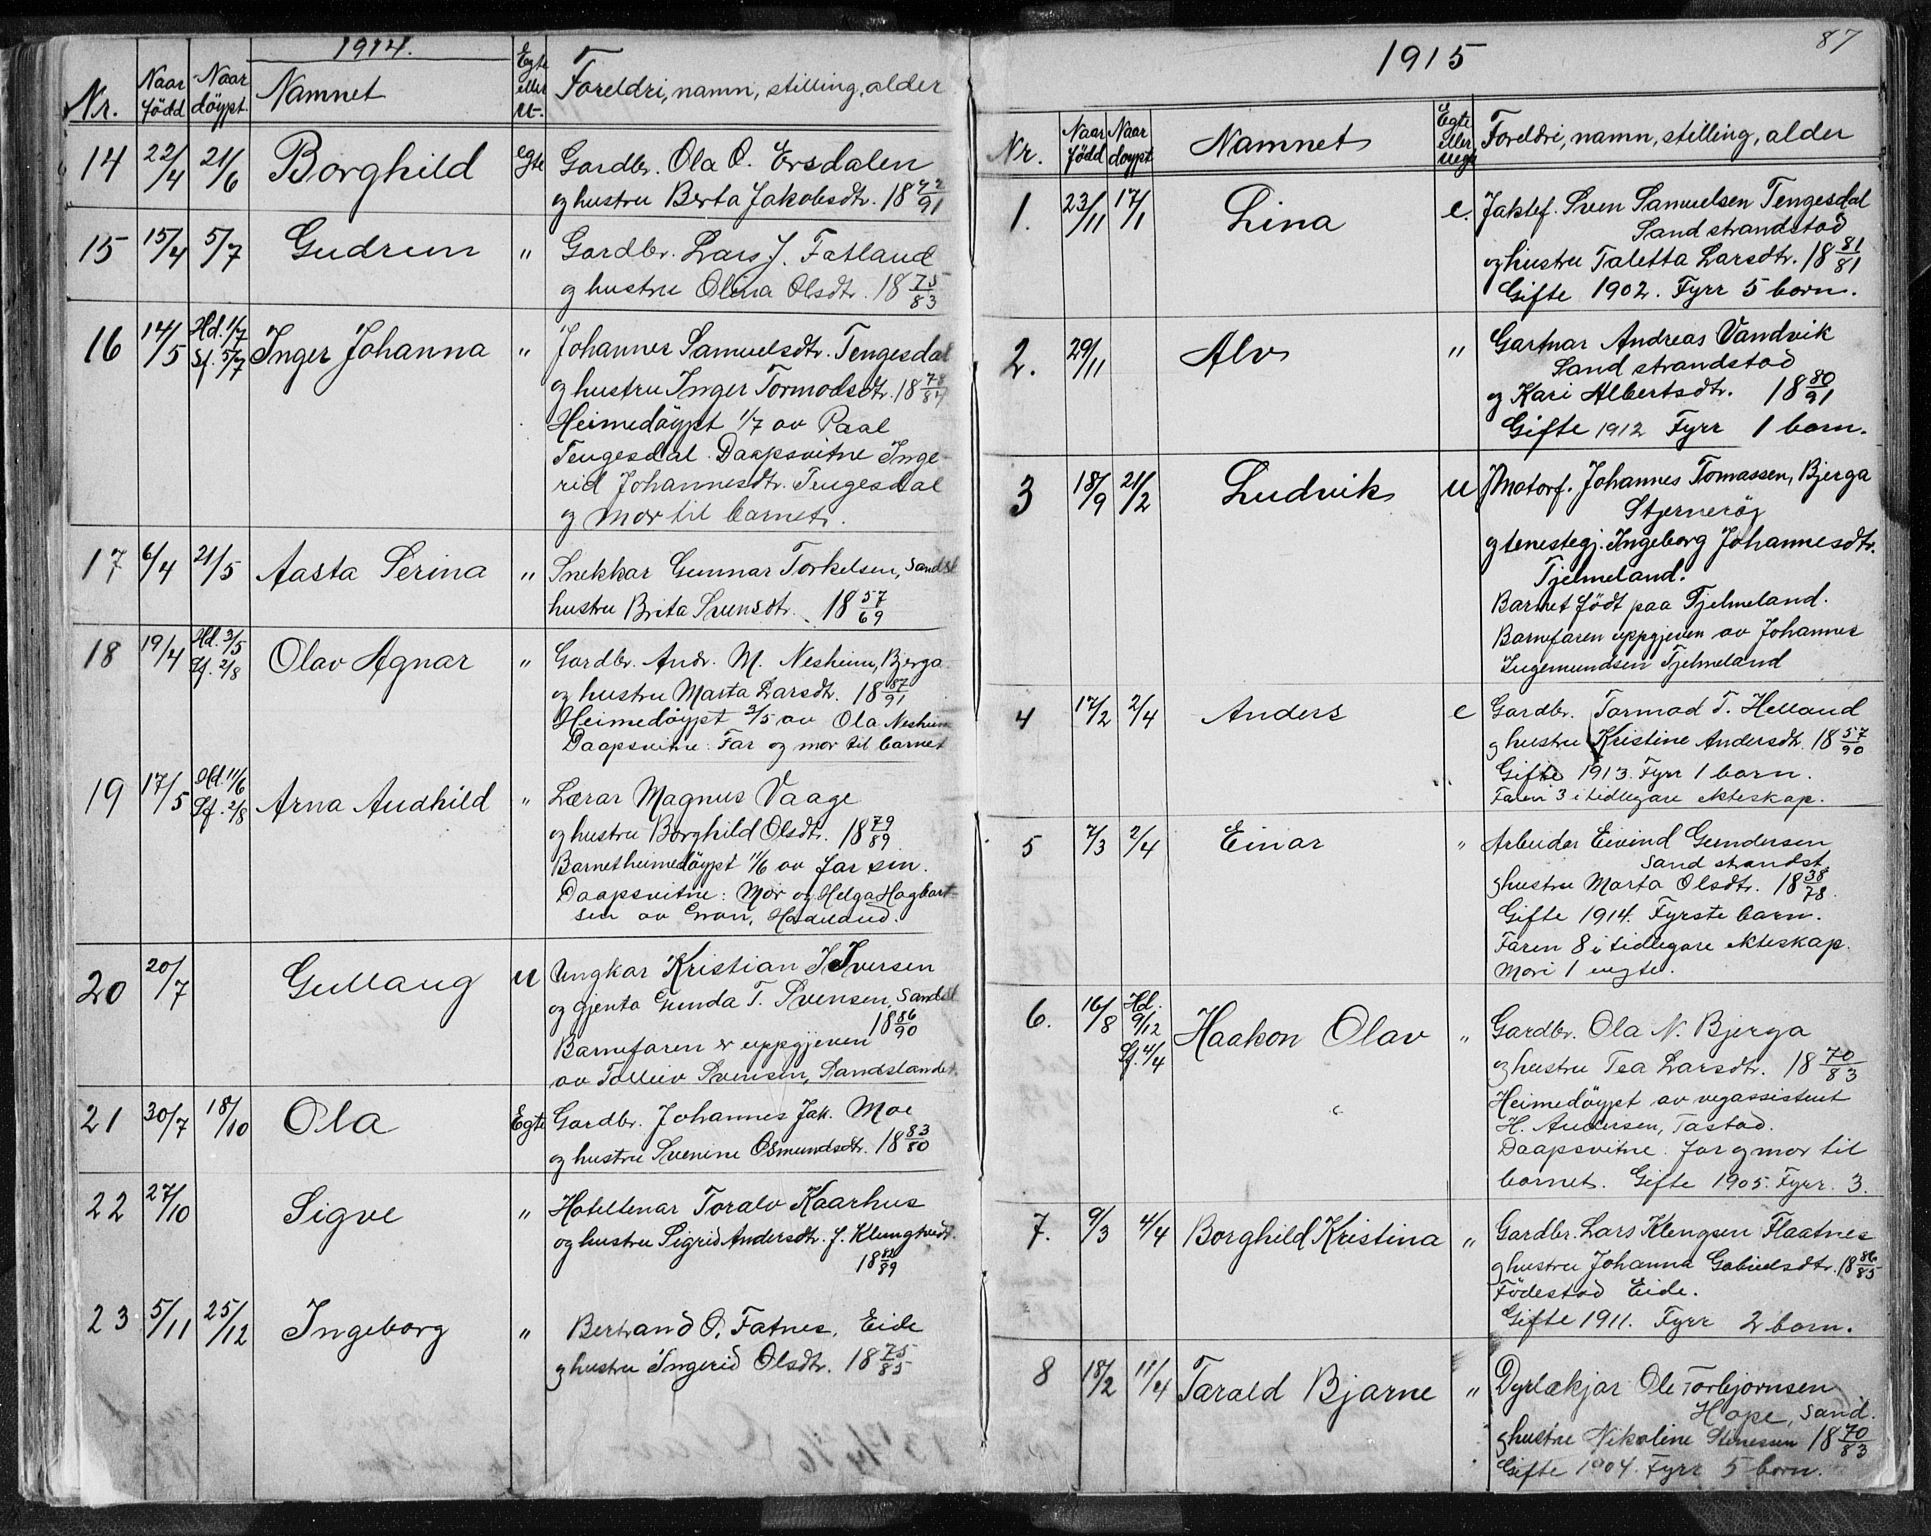 1914.
Nr. Naar född Naar döypt Namnet Egte eller u. Foreldri, namn, stilling, alder
14 22/4 21/6 Borghild egte Gardbr. Ola O. Ersdalen
og hustru Berta Jakobsdtr. 18 72/91
15 15/4 5/7 Gudrun " Gardbr. Lars J. Fatland
og hustru Olina Olsdtr. 18 75/83
16 14/5 Hd. 1/7 Sf. 5/7 Inger Johanna " Johannes Samuelsdtr. Tengesdal
og hustru Inger Tormodsdtr. 18 78/84
Heimedöypt 1/7 av Paal
Tengesdal. Daapsvitne Inge-
rid Johannesdtr. Tengesdal
og mor til barnet.
17 6/4 21/5 Aasta Serina " Snekkar Gunnar Torkelsen, Sandsl
hustru Brita Svensdtr. 18 57/69
18 19/4 Hd. 3/5 Sf. 2/8 Olav Agnar " Gardbr. Andr. M. Nesheim, Bjerga
og hustru Marta Larsdtr. 18 87/91
Heimedöypt 3/5 av Ola Nesheim
Daapsvitne: Far og mor til barnet
19 17/5 Hd. 11/6 Sf. 2/8 Arna Audhild " Lærar Magnus Vaage
og hustru Borghild Olsdtr. 18 79/89
Barnet heimedöypt 11/6 av far sin.
Daapsvitne: Mor og Helga Hagbart-
sen av Gran, Hadeland.
20 20/7 Gullaug u Ungkar Kristian I Iversen
og gjenta Gunda T. Svensen, Sandsl
18 86/90
Barnefaren er uppgjeven
av Tolleiv Svensen, Sandslandet
21 30/7 18/10 Ola Egte Gardbr. Johannes Jak. Moe
og hustru Svenine Osmundsdtr. 18 83/80
22 27/10 Sigve " Hotelleigar Toralv Kaarhus
og hustru Sigrid Andersdtr. f. Klungtveit
18 /89
23 5/11 25/12 Ingeborg " Bertrand O. Fatnes, Eide
og hustru Ingerid Olsdtr. 18 75/85
87
1915
Nr. Naar född Naar döypt Namnet Egte eller uegt Foreldri, namn, stilling, alder
1. 23/11 17/1 Lina e. Jaktef. Sven Samuelsen Tengesdal
Sand strandstad
og hustru Taletta Larsdtr. 18 81/81
Gifte 1902. Fyrr 5 born.
2. 29/11 Alv " Gartnar Andreas Vandvik
Sand strandstad
og Kari Albertsdtr. 18 80/91
Gifte 1912 Fyrr 1 barn.
3 18/9 21/2 Ludvik u Motorf. Johannes Tomassen, Bjerga
Stjerneröy
og tenestegj. Ingeborg Johannesdtr.
Tjelmeland.
Barnet födt paa Tjelmeland.
Barnefaren uppgjeven av Johannes
Ingemundsen Tjelmeland
4 17/2 2/4 Anders e Gardbr. Tormod T. Helland
og hustru Kristine Andersdtr. 18 57/90
Gifte 1913. Fyrr 1 barn.
Faren 3 i tidlegare ekteskap.
5 7/3 2/4 Einar " Arbeidar Eivind Gundersen
Sand strandst
og hustru Marta Olsdtr. 18 38/78.
Gifte 1914. Fyrste barn.
Faren 8 i tidlegare ekteskap.
Mori 1 uegte.
6. 16/8 Hd. 9/12 Sf. 4/4 Haakon Olav " Gardbr. Ola N. Bjerga
og hustru Tea Larsdtr. 18 70/83
Heimedöypt av vegassistent
H. Andersen, Tastad.
Daapsvitne: far og mor til
barnet. Gifte 1905. Fyrr 3.
7. 9/3 4/4 Borghild Kristina " Gardbr. Lars Klengsen Flaatnes
og hustru Johanna Gabrielsdtr. 18 86/85
Födestad Eide.
Gifte 1911. Fyrr 2 born.
8 18/2 11/4 Tarald Bjarne " Dyrlækjar Ole Torbjornsen
Hope, Sand.
og hustru Nikoline Stenessen 18 70/83
Gifte 1904. Fyrr 5 born.